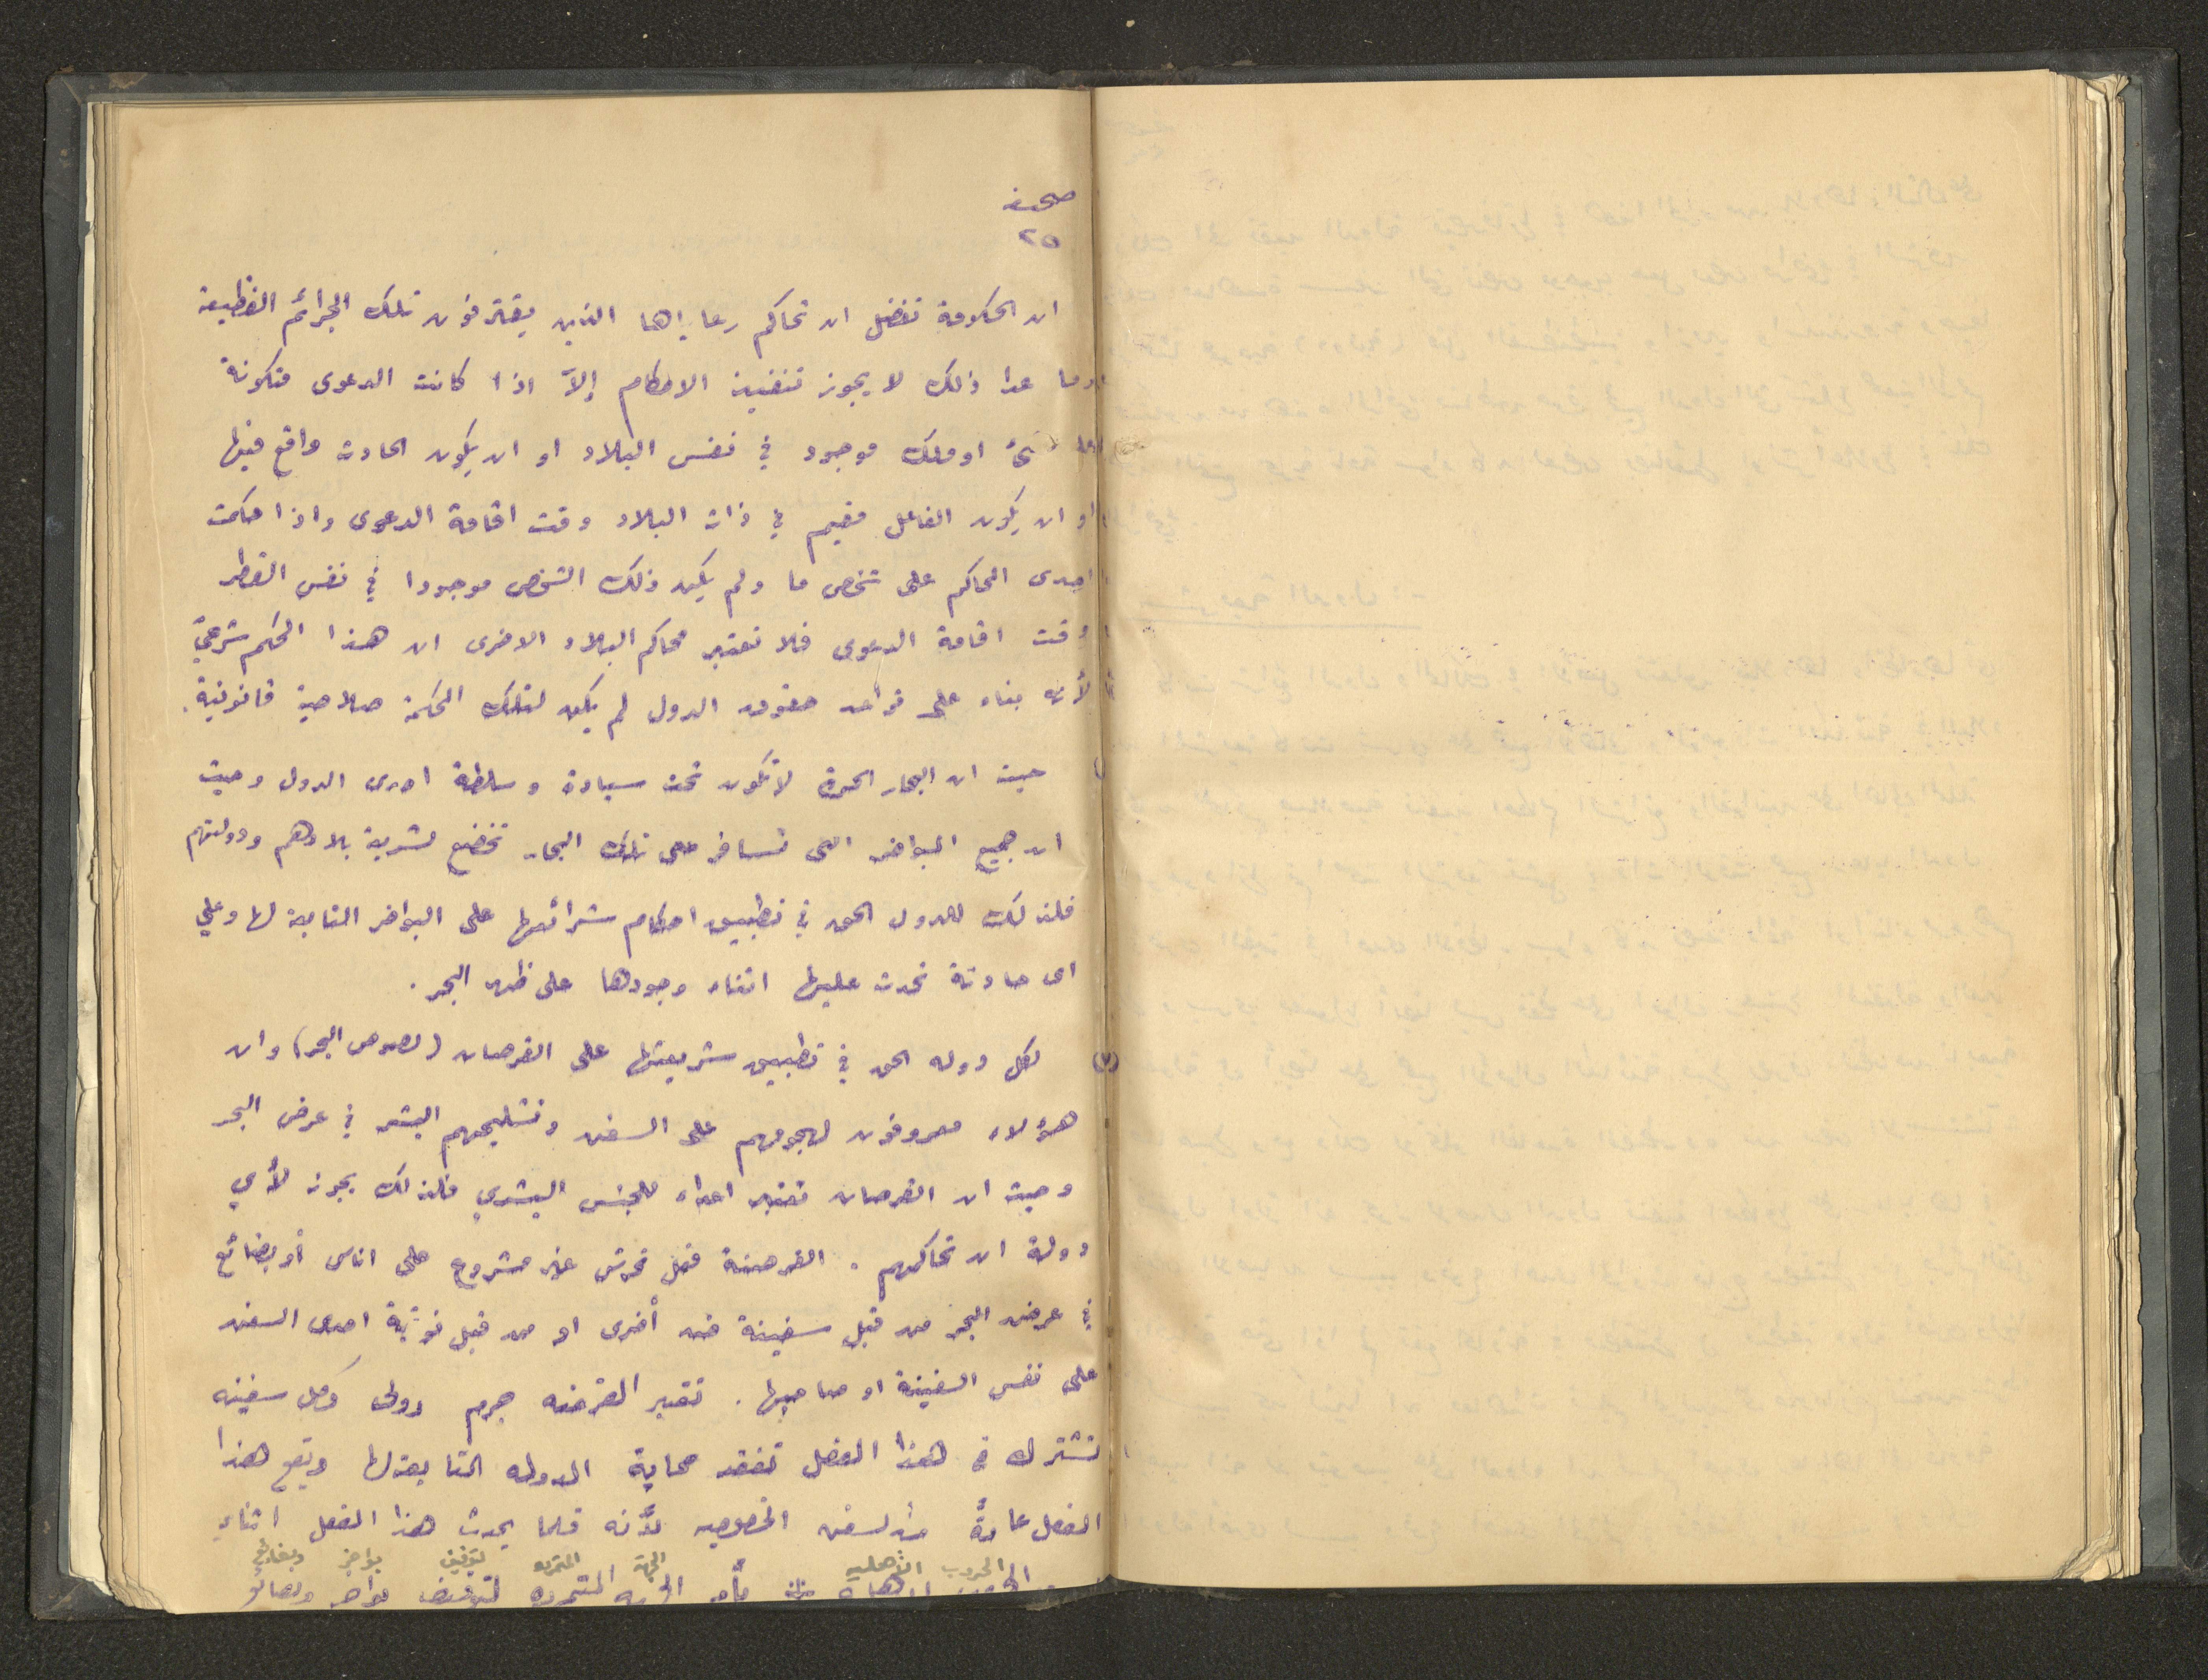 صحيفة
٢٥
ان الحكومة تفضل ان تحاكم رعاياها الذين يقترفون تلك الجرائم الفظيعة
وما عدا ذلك لا يجوز تنفيذ الاحكام إلاّ اذا كانت الدعوى متكونة
او ملك موجود في نفس البلاد او ان يكون الحادث واقع فيها
او ان يكون الفاعل مقيم في ذات البلاد وقت اقامة الدعوى واذا حكمت
احدى المحاكم على شخص ما ولم يكن ذلك الشخص موجودا في نفس القطر
وقت اقامة الدعوى فلا تعتبر محاكم البلاد الاخرى ان هذا الحكم شرعيّ
لأنه بناء على قواعد حقوق الدول لم يكن لتلك المحكمة صلاحية قانونية.
حيث ان البحار الحرة لا تكون تحت سيادة وسلطة احدى الدول وحيث
ان جميع البواخر التى تسافر على تلك البحار تخضع لشريعة بلادهم ودولتهم
فلذلك للدول الحق في تطبيق احكام شرائعها على البواخر التابعة لها وعلى
اى حادثة تحدث عليها اثناء وجودها على ظهر البحر.
(٧) لكل دوله الحق في تطبيق شريعتها على القرصان (لصوص البحر) وان
هؤلاء معروفون لهجومهم على السفن وتشليحهم البشر في عرض البحر
وحيث ان القرصان تعتبر اعداء للجنس البشري فلذلك يجوز لأي
دولة ان تحاكمهم. القرصنة فعل تحرش غير مشروع على اناس أو بضائع
في عرض البحر من قبل سفينة ضد أخرى او من قبل نوتية احدى السفن
على نفس السفينة او صاحبها. تعتبر القرصنه جرم دولى وكل سفينه
تشترك في هذا الفعل تفقد حماية الدوله التابعة لها ويقع هذا
الفعل عادةً من السفن الخصوصيه لأنه قلما يحدث هذا الفعل اثناء
الحروب الأهليه الجهة المتمرده لتوقيف بواخر وبضائع